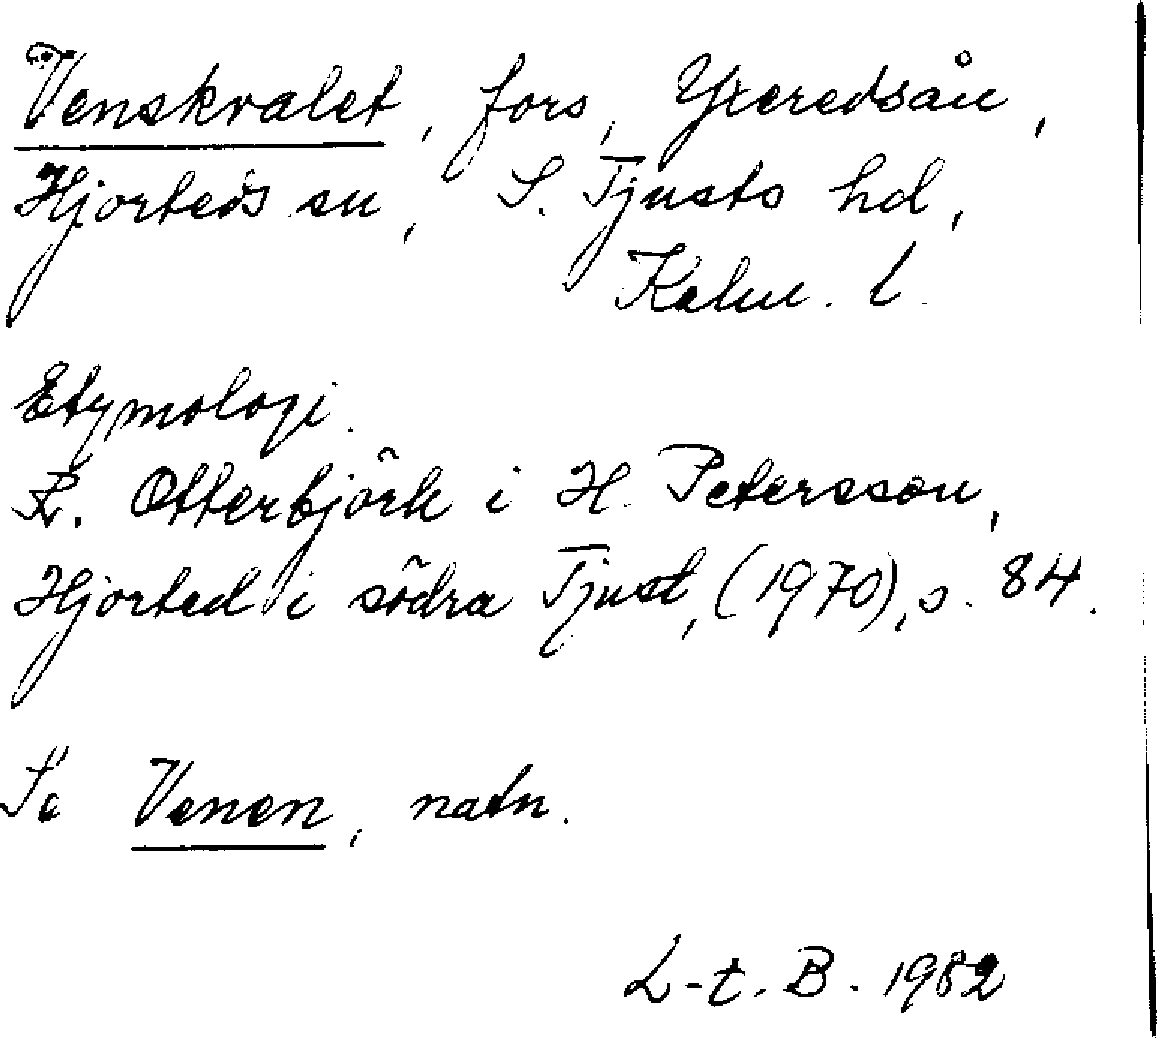 Venskvalet, fors, Yxeredsån,
Hjorteds sn, S. Tjusts hd,
Kalm. l.
Etymologi.
R. Otterbjörk i H. Petersson,
Hjorted i södra Tjust, (1970), s. 84.
Se Venen, natn.
L-t. B. 1982